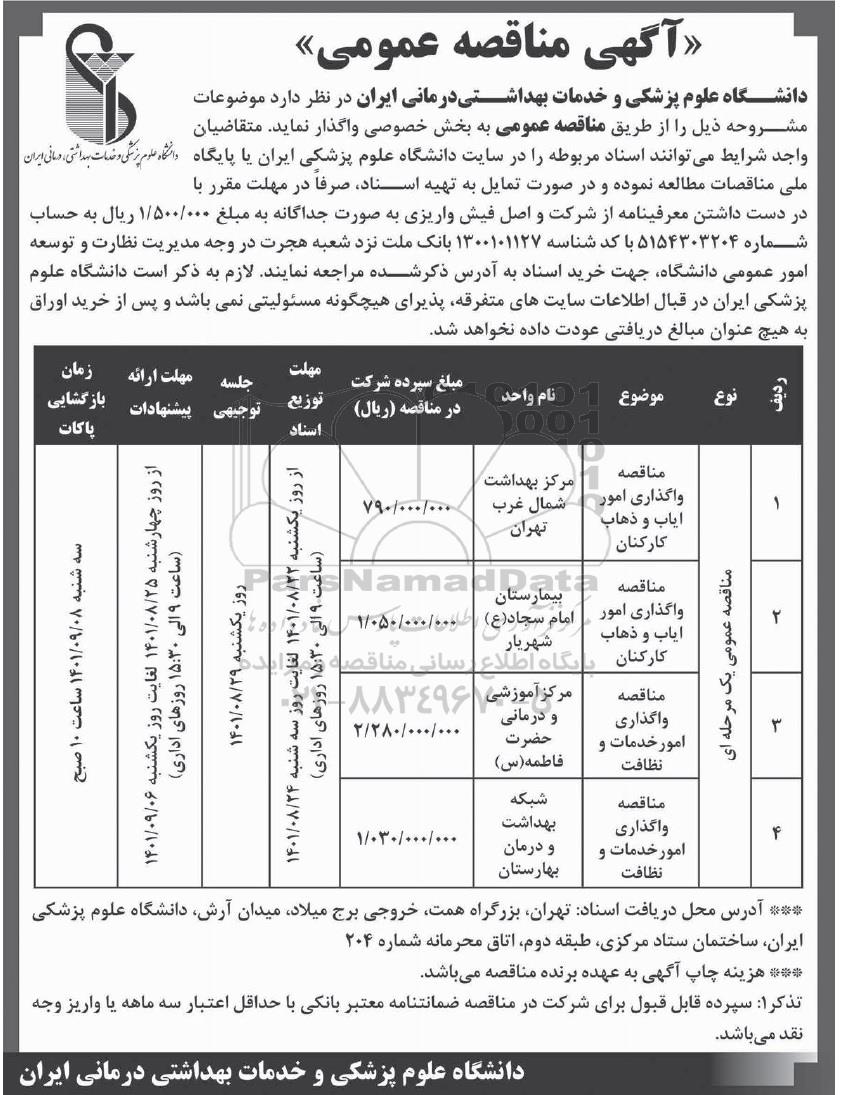 «آگهی مناقصه عمومی»
دانشگاه علوم پزشکی و خدمات بهداشتی، درمانی ایران
دانشـــگاه علوم پزشکی و خدمات بهداشـــتی‌درمانی ایران در نظر دارد موضوعات
مشـــروحه ذیل را از طریق مناقصه عمومی به بخش خصوصی واگذار نماید. متقاضیان
واجد شرایط می‌توانند اسناد مربوطه را در سایت دانشگاه علوم پزشکی ایران یا پایگاه
ملی مناقصات مطالعه نموده و در صورت تمایل به تهیه اســـناد، صرفاً در مهلت مقرر با
در دست داشتن معرفینامه از شرکت و اصل فیش واریزی به صورت جداگانه به مبلغ ۱/۵۰۰/۰۰۰ ریال به حساب
شـــماره ۵۱۵۴۳۰۳۲۰۴ با کد شناسه ۱۳۰۰۱۰۱۱۲۷ بانک ملت نزد شعبه هجرت در وجه مدیریت نظارت و توسعه
امور عمومی دانشگاه، جهت خرید اسناد به آدرس ذکرشـــده مراجعه نمایند. لازم به ذکر است دانشگاه علوم
پزشکی ایران در قبال اطلاعات سایت های متفرقه، پذیرای هیچگونه مسئولیتی نمی باشد و پس از خرید اوراق
به هیچ عنوان مبالغ دریافتی عودت داده نخواهد شد.
ردیف
نوع
موضوع
نام واحد
مبلغ سپرده شرکت
در مناقصه (ریال)
مهلت
توزیع
اسناد
جلسه
توجیهی
مهلت ارائه
پیشنهادات
زمان
بازگشایی
پاکات
۱
مناقصه عمومی یک مرحله ای
مناقصه
واگذاری امور
ایاب و ذهاب
کارکنان
مرکز بهداشت
شمال غرب
تهران
۷۹۰/۰۰۰/۰۰۰
از روز یکشنبه ۱۴۰۱/۰۸/۲۲ لغایت روز سه شنبه ۱۴۰۱/۰۸/۲۴
(ساعت ۹ الی ۱۵:۳۰ روزهای اداری)
روز یکشنبه ۱۴۰۱/۰۸/۲۹
از روز چهارشنبه ۱۴۰۱/۰۸/۲۵ لغایت روز یکشنبه ۱۴۰۱/۰۹/۰۶
(ساعت ۹ الی ۱۵:۳۰ روزهای اداری)
سه شنبه ۱۴۰۱/۰۹/۰۸ ساعت ۱۰ صبح
۲
مناقصه
واگذاری امور
ایاب و ذهاب
کارکنان
بیمارستان
امام سجاد(ع)
شهریار
۱/۰۵۰/۰۰۰/۰۰۰
۳
مناقصه
واگذاری
امورخدمات و
نظافت
مرکزآموزشی
و درمانی
حضرت
فاطمه(س)
۲/۲۸۰/۰۰۰/۰۰۰
۴
مناقصه
واگذاری
امورخدمات و
نظافت
شبکه
بهداشت
و درمان
بهارستان
۱/۰۳۰/۰۰۰/۰۰۰
ParsNamadData
پایگاه اطلاع رسانی مناقصه و مزایده
۰۲۱-۸۸۳۴۹۶۷۰-۵
*** آدرس محل دریافت اسناد: تهران، بزرگراه همت، خروجی برج میلاد، میدان آرش، دانشگاه علوم پزشکی
ایران، ساختمان ستاد مرکزی، طبقه دوم، اتاق محرمانه شماره ۲۰۴
*** هزینه چاپ آگهی به عهده برنده مناقصه می‌باشد.
تذکر۱: سپرده قابل قبول برای شرکت در مناقصه ضمانتنامه معتبر بانکی با حداقل اعتبار سه ماهه یا واریز وجه
نقد می‌باشد.
دانشگاه علوم پزشکی و خدمات بهداشتی درمانی ایران